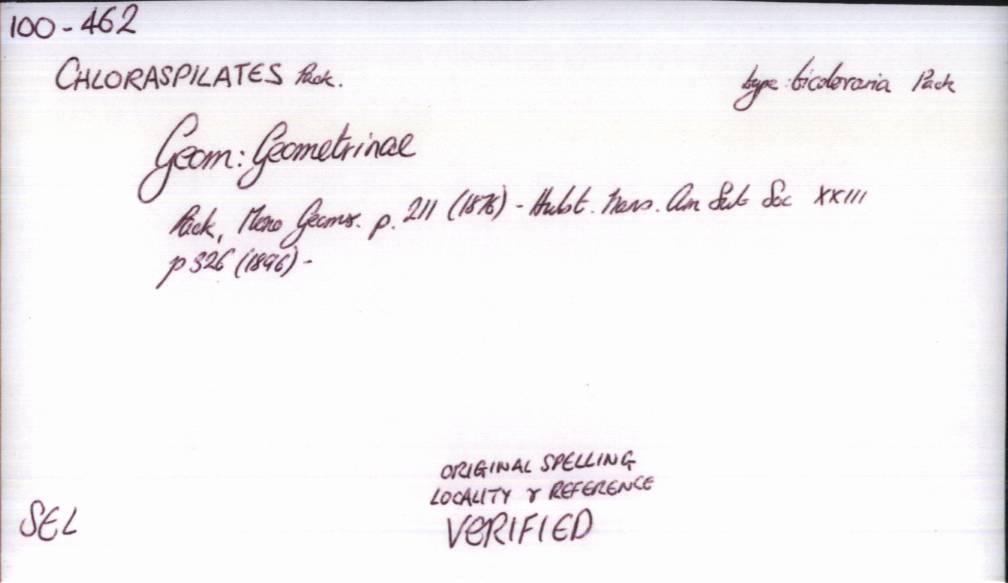 100-462
CHLORASPILATES Pack.
type: bicoloraria Pack
Geom: Geometrinae
Pack, Mono Geoms. p. 211 (1876) - Hulst. Trans. Am Ent Soc XXIII
p 326 (1896) -
ORIGINAL SPELLING
LOCALITY & REFERENCE
VERIFIED
SEL